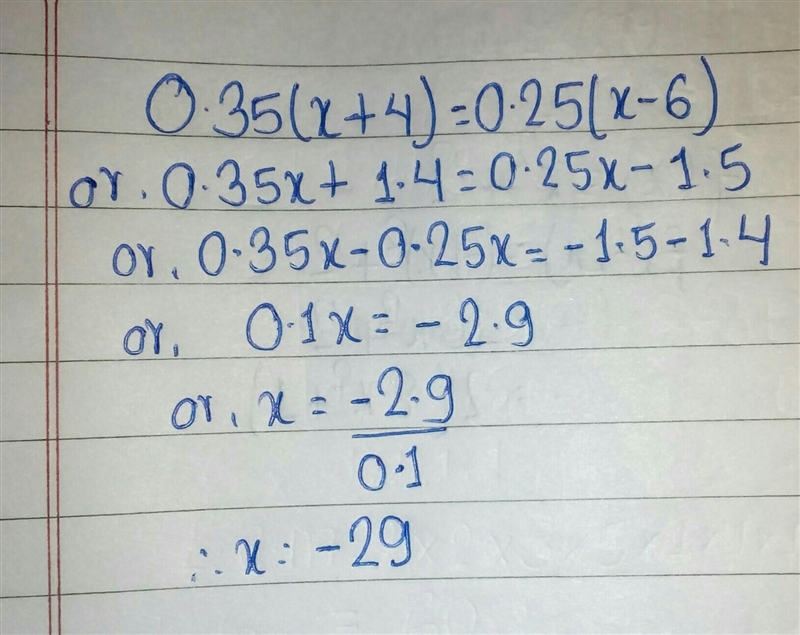 0.35(x+4)=0.25(x-6)
or. 0.35x+ 1.4=0.25x-1.5
or, 0.35x-0.25x=-1.5-1.4
or, 0.1x=-2.9
or, x = -2.9
0.1
∴ x = -29